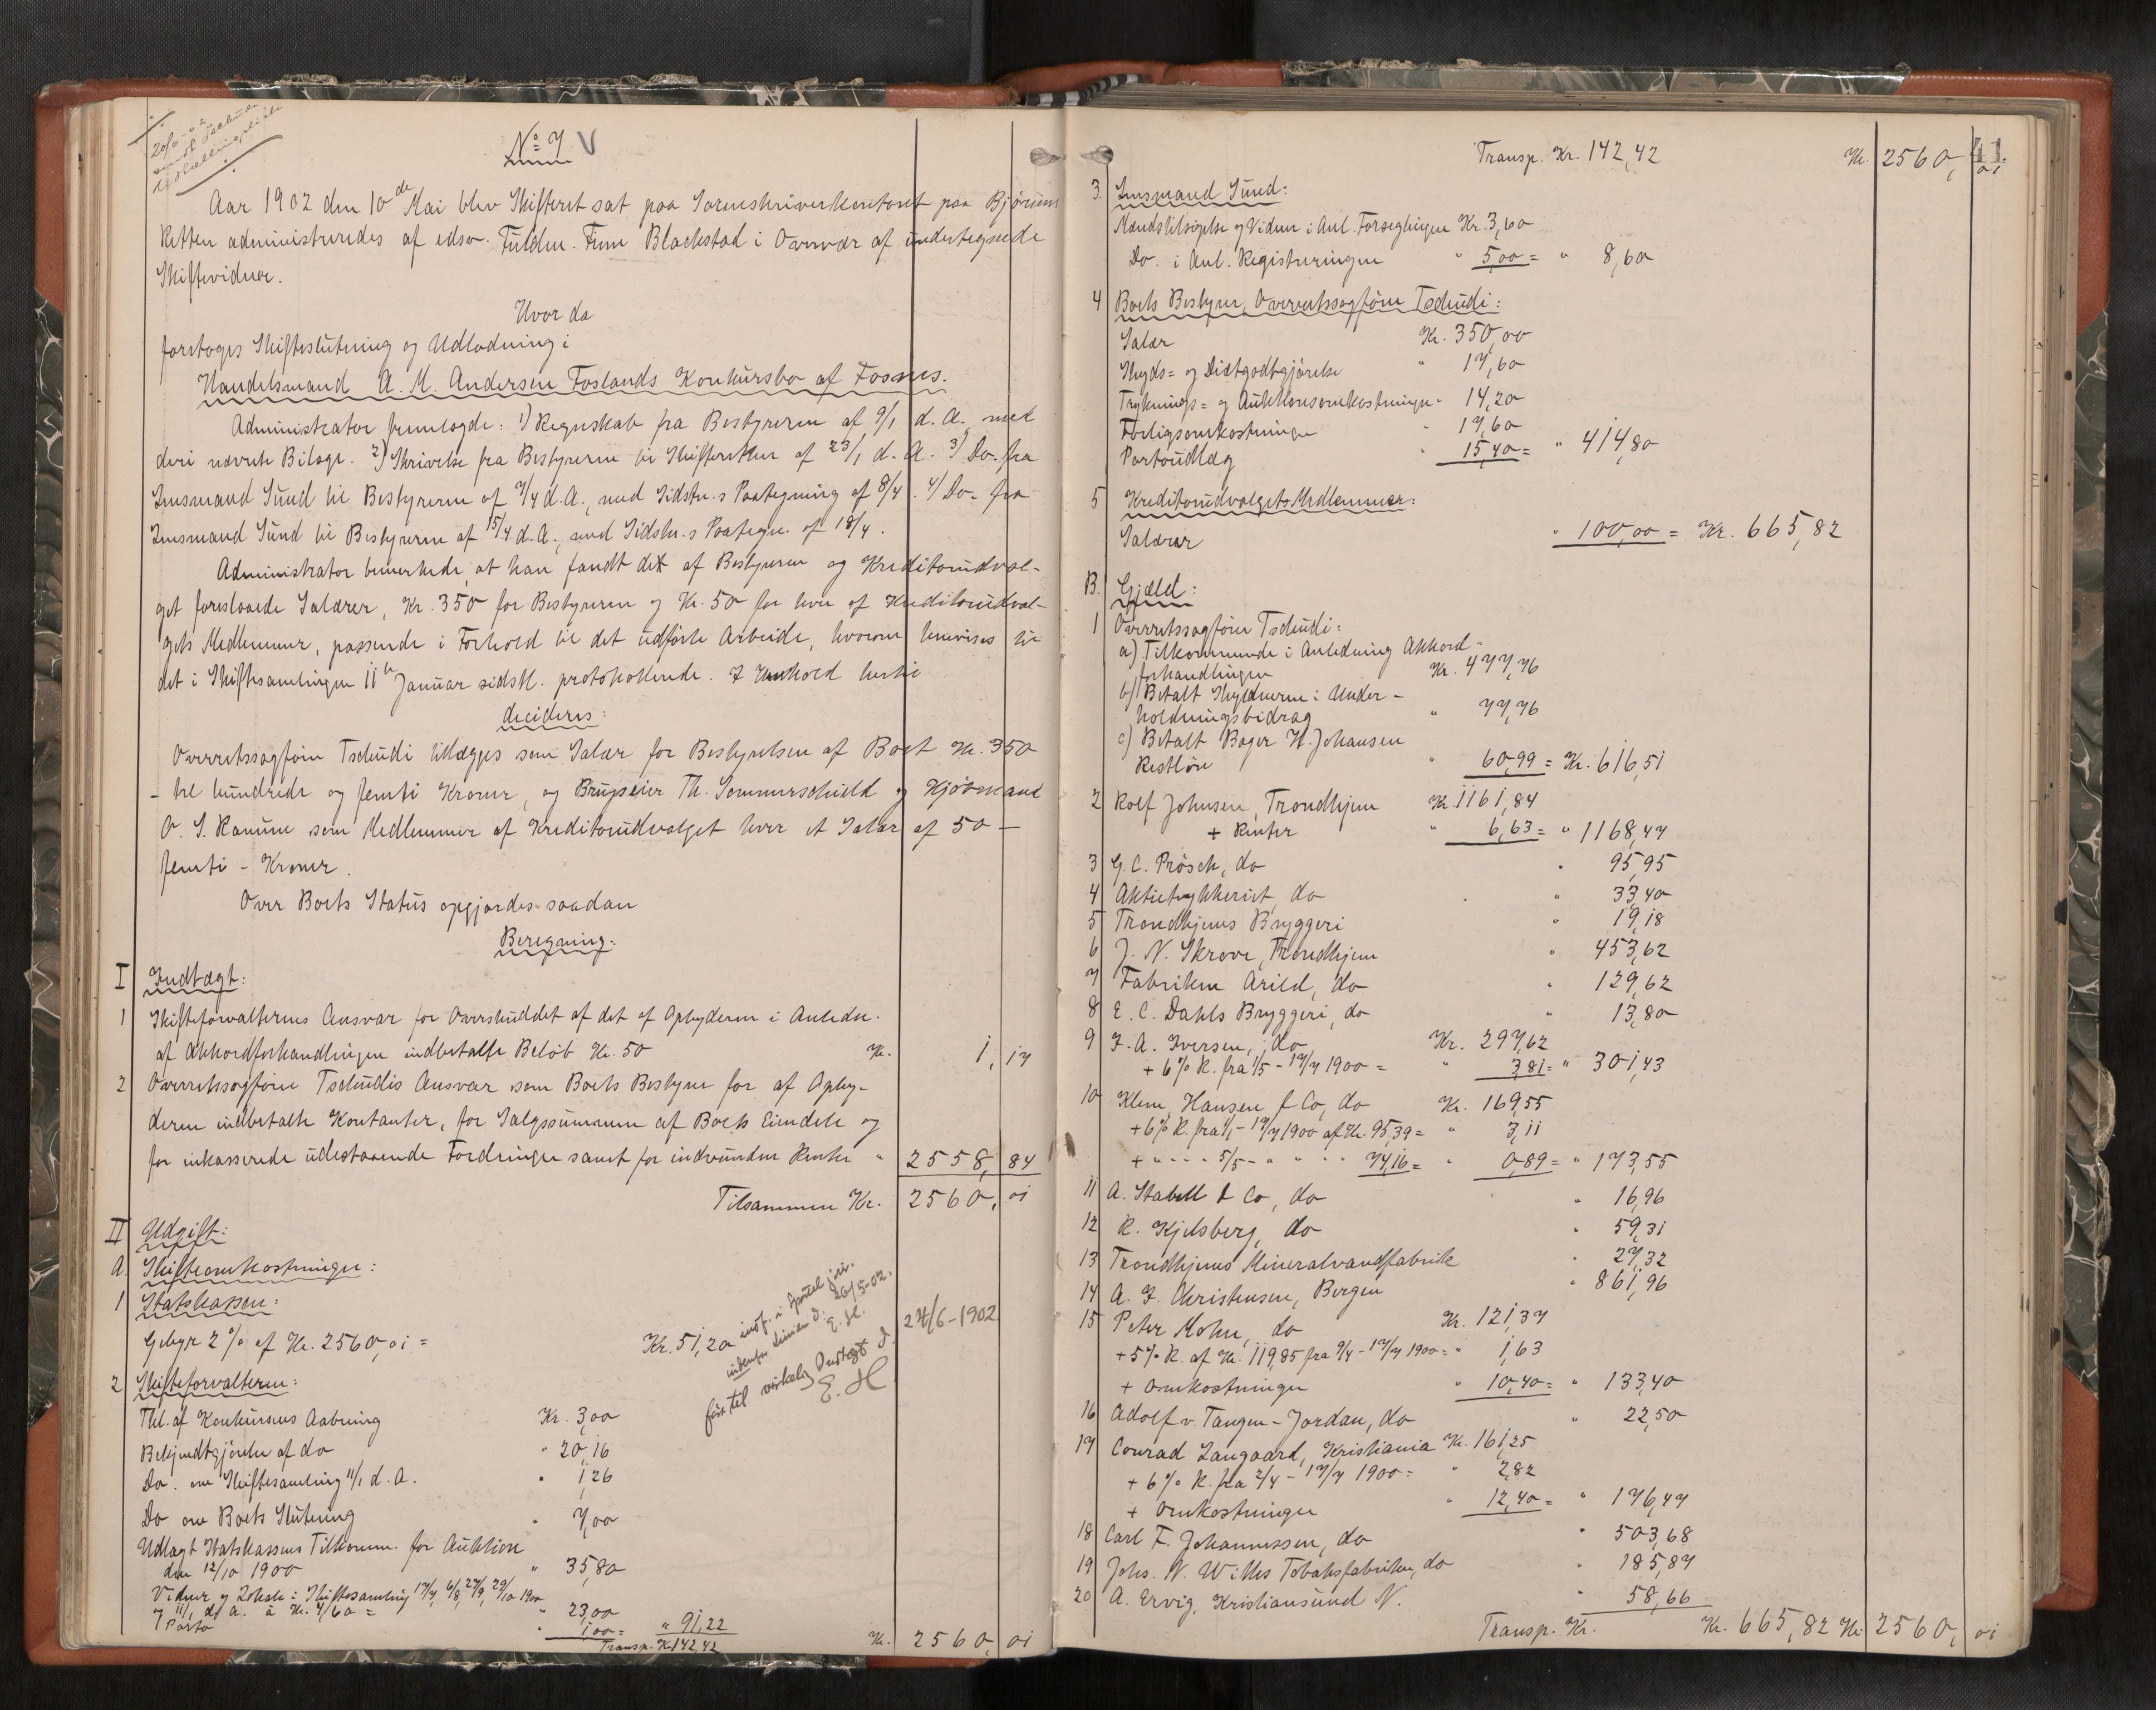 20/6-02
sendt Tschudi
Udlodningsliste
No 7 V
Aar 1902 den 10de Mai blev Skifteret sat paa Sorenskriverkontoret paa Bjørum
Retten administreredes af edsv. Fuldm. Finn Blackstad i Overvær af undertegnede
Skiftevidner.
Hvor da
foretoges Skifteslutning og Udlodning i
Handelsmand A. M. Andersen Foslands Konkursbo af Fosnes.
Administrator fremlagde: 1) Regnskab fra Bestyreren af 9/1 d. A. med
deri nævnte Bilage. 2) Skrivelse fra Bestyreren til Skifteretten af 23/1 d. A. 3) Do. fra
Lensmand Sund til Bestyreren af 7/4 d. A., med Sidstn.s Paategning af 8/4. 4) Do. fra
Lensmand Sund til Bestyreren af 15/4 d. A., med Sidstn.s Paategn. af 18/4.
Administrator bemerkede, at han fandt det af Bestyreren og Kreditorudval-
get foreslaaede Salærer, Kr. 350 for Bestyreren og Kr. 50 for hver af Kreditorudval-
gets Medlemmer, passende i Forhold til det udførte Arbeide, hvorom henvises til
det i Skiftesamlingen 11te Januar sidstl. protokollerede. I Henhold hertil
decideres:
Overretssagfører Tschudi tillægges som Salær for Bestyrelsen af Boet Kr. 350
- tre hundrede og femti Kroner, og Brugseier Th. Sommerschield og Kjøbmand
O. S. Ranum som Medlemmer af Kreditorudvalget hver et Salær af 50 -
femti - Kroner.
Over Boets Status opgjordes saadan
Beregning:
I Indtægt:
1 Skifteforvalterens Ansvar for Overskuddet af det af Opbyderen i Anledn.
af Akkordforhandlingen indbetalte Beløb Kr. 50 Kr. 1, 17
2 Overretssagfører Tschudis Ansvar som Boets Bestyrer for af Opby-
deren indbetalte Kontanter, for Salgssummen af Boets Eiendele og
for inkasserede udestaaende Fordringer samt for indvundne Renter " 2558, 84
Tilsammen Kr. 2560, 01
II Udgift:
A. Skifteomkostninger:
1 Statskassen:
Gebyr 2 % af Kr. 2560,01 = Kr. 51,20
indf. i Sportel jour.
indenfor Linien d. 20/5-02.
E. H.
24/6-1902
ført til virkelig Indtægt d.
E. H.
2 Skifteforvalteren:
Thl. af Konkursens Aabning Kr. 3,00
Bekjendtgjørelse af do " 20,16
Do. om Skiftesamling 11/1 d. A. " 1,26
Do om Boets Slutning " 7,00
Udlagt Statskassens Tilkomm. for Auktion
den 12/10 1900 " 35,80
Vidner og Lokale i Skiftesamling 17/7, 6/8, 27/9, 29/10 1900
og 11/1 d. A. à Kr. 4,60 = " 23,00
Porto " 1,00 = " 91,22
Transp. Kr. 142,42 Kr. 2560, 01
41.
Transp. Kr. 142,42 Kr. 2560, 01
3. Lensmand Sund:
Mandstilsigelse og Vidner i Anl. Forseglingen Kr. 3,60
Do. i Anl. Registreringen " 5,00 = " 8,60
4 Boets Bestyrer, Overretssagfører Tschudi:
Salær Kr. 350,00
Skyds- og Diætgodtgjørelse " 17,60
Tryknings- og Auktionsomkostninger " 14,20
Forligsomkostninger " 17,60
Portoudlæg " 15,40 = " 414,80
5 Kreditorudvalgets Medlemmer:
Salærer " 100,00 = Kr. 665,82
B. Gjæld:
1 Overretssagfører Tschudi:
a) Tilkommende i Anledning Akkord-
forhandlingen Kr. 477,76
b) Betalt Skyldneren i Under-
holdningsbidrag " 77,76
c) Betalt Bager H. Johansen
Restløn " 60,99 = Kr. 616,51
2 Rolf Johnsen, Trondhjem Kr. 1161,84
+ Renter " 6,63 = " 1168,47
3 G. C. Prösch, do " 95,95
4 Aktietrykkeriet, do " 33,40
5 Trondhjems Bryggeri " 19,18
6 J. N. Skrove, Trondhjem " 453,62
7 Fabriken Arild, do " 129,62
8 E. C. Dahls Bryggeri, do " 13,80
9 F. A. Iversen, do Kr. 297,62
+ 6 % R. fra 1/5 - 17/7 1900 = " 3,81 = " 301,43
10 Klem, Hansen & Co, do Kr. 169,55
+ 6 % R. fra 1/1 - 17/7 1900 af Kr. 95,39 = " 3,11
+ " - - - 5/5 - " " " " 74,16 = " 0,89 = " 173,55
11 A. Stabell & Co, do " 16,96
12 R. Kjelsberg, do " 59,31
13 Trondhjems Mineralvandfabrik " 27,32
14 A. F. Christensen, Bergen " 861,96
15 Peter Mohn, do Kr. 121,37
+ 5 % R. af Kr. 119,85 fra 9/4 - 17/7 1900 = " 1,63
+ Omkostninger " 10,40 = " 133,40
16 Adolf v. Tangen-Jordan, do " 22,50
17 Conrad Langaard, Kristiania Kr. 161,25
+ 6 % R. fra 2/4 - 17/7 1900 = " 2,82
+ Omkostninger " 12,40 = " 176,47
18 Carl F. Johannessen, do " 503,68
19 Johs. N. Wilks Tobaksfabriker, do " 185,87
20 A. Ervig, Kristiansund N. " 58,66
Transp. Kr. Kr. 665,82 Kr. 2560, 01